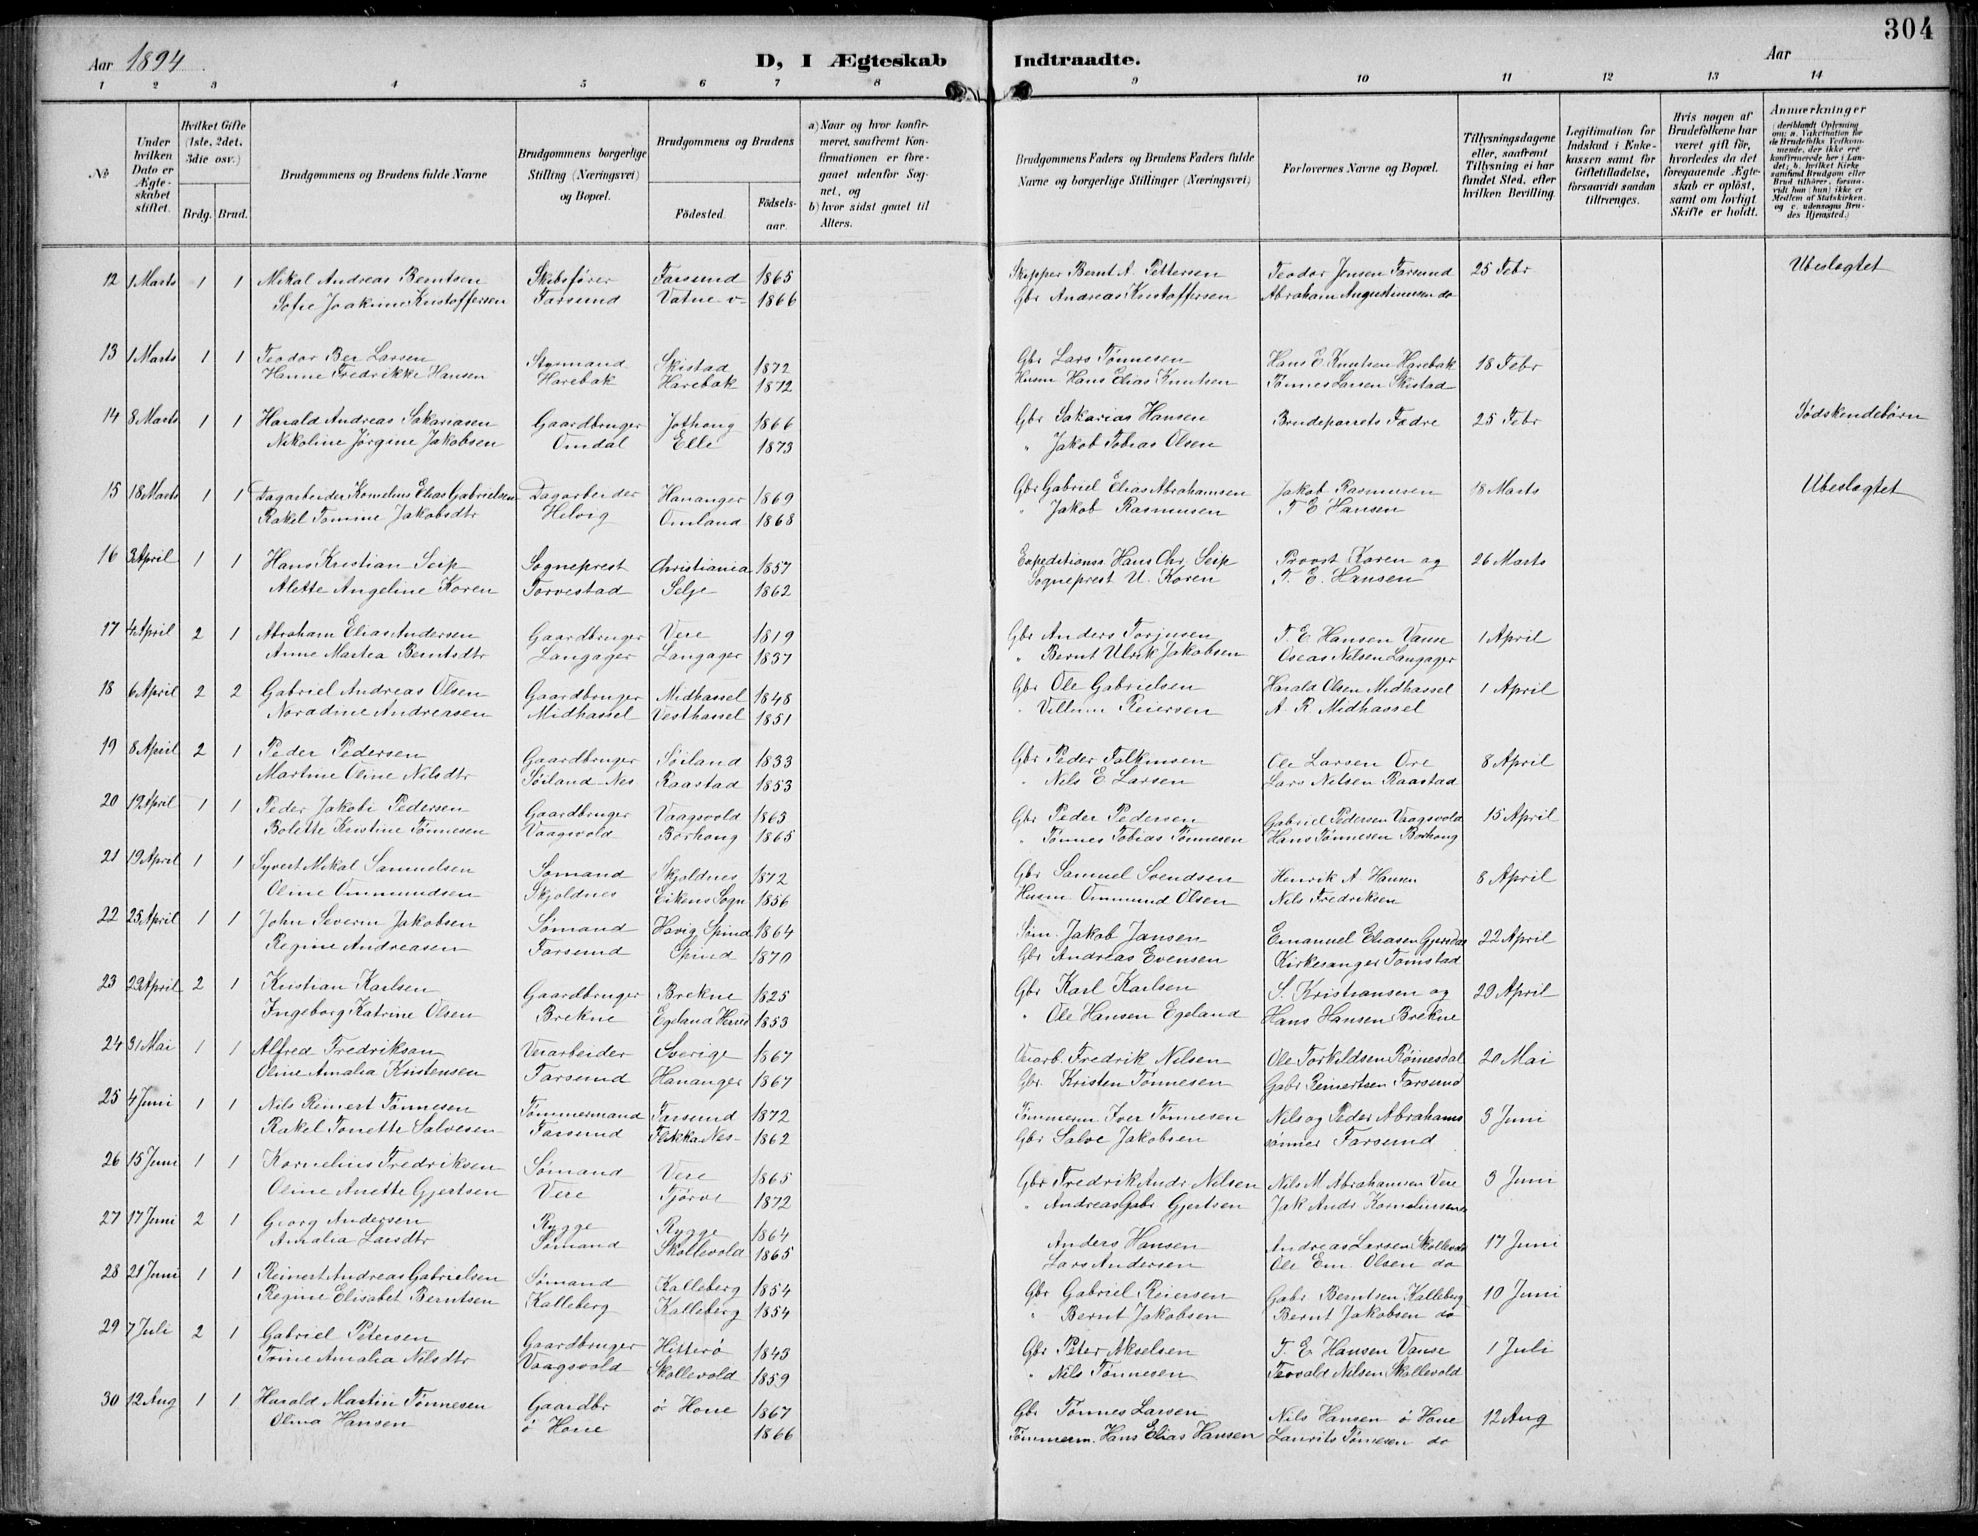 304
Aar 1894
D, I Ægteskab Indtraadte.
Aar
1 2 3 4 5 6 7 8 9 10 11 12 13 14
No
Under hvilken Dato er Ægteskabet stiftet.
Hvilket Gifte (1ste, 2det, 3die osv.)
Brdg. Brud.
Brudgommens og Brudens fulde Navne
Brudgommens borgerlige Stilling (Næringsvei) og Bopæl.
Brudgommens og Brudens
Födested. Födselsaar.
a) Naar og hvor konfirmeret, saafremt Konfirmationen er foregaaet udenfor Sognet, og
b) hvor sidst gaaet til Alters.
Brudgommens Faders og Brudens Faders fulde Navne og borgerlige Stillinger (Næringsvei)
Forlovernes Navne og Bopæl.
Tillysningsdagene eller, saafremt Tillysning ei har fundet Sted, efter hvilken Bevilling
Legitimation for Indskud i Enkekassen samt for Giftetilladelse, forsaavidt saadan tiltrænges.
Hvis nogen af Brudefolkene har været gift før, hvorledes da det foregaaende Ægteskab er oplöst, samt om lovligt Skifte er holdt.
Anmærkninger (deriblandt Oplysning om: a. Vakcination for de Brudefolks Vedkommende, der ikke ere konfirmerede her i Landet; b. hvilket Kirkesamfund Brudgom eller Brud tilhører, forsaavidt han (hun) ikke er Medlem af Statskirken, og c. udensogns Brudes Hjemsted.)
12 1 Marts 1 1 Mikal Andreas Berntsen Skibsfører Farsund 1865 Skipper Bernt A. Pettersen Teodor Jensen Farsund 25 Febr Ubeslegtet
Sofie Joakime Kristoffersen Farsund Vatne v- 1866 Gbr Andreas Kristoffersen Abraham Augustinussen do
13 1 Marts 1 1 Teodor Ber Larsen Styrmand Skistad 1872 Gbr Lars Tønnesen Hans E Knutsen Harebak 18 Febr
Hanne Fredrikke Hansen Harebak Harebak 1872 Husm Hans Elias Knutsen Tønnes Larsen Skistad
14 8 Marts 1 1 Harald Andreas Sakariasen Gaardbruger Jothong 1866 Gbr Sakarias Hansen Brudeparrets Fædre 25 Febr Södskendebörn
Nikoline Jørgine Jakobsen Omdal Elle 1873 " Jakob Tobias Olsen
15 18 Marts 1 1 Dagarbeider Kornelius Elias Gabrielsen Dagarbeider Hananger 1869 Gbr Gabriel Elias Abrahamsen Jakob Rasmusen 18 Marts Ubeslegtet
Rakel Tomine Jakobsdtr Helvig Omland 1868 " Jakob Rasmusen T E Hansen
16 3 April 1 1 Hans Kristian Seip Sogneprest Christiania 1857 Expeditionss. Hans Chr. Seip Provst Koren og 26 Marts
Alette Angeline Koren Torvestad Selje 1862 Sogneprest U. Koren T. E. Hansen
17 4 April 2 1 Abraham Elias Andersen Gaardbruger Vere 1819 Gbr Anders Torjusen T. E. Hansen Vanse 1 April
Anne Martea Berntsdtr Langager Langager 1837 " Bernt Ulrik Jakobsen Oseas Nilsen Langager
18 6 April 2 2 Gabriel Andreas Olsen Gaardbruger Midhassel 1848 Gbr Ole Gabrielsen Harald Olsen Midhassel 1 April
Noradine Andreasen Midhassel Vesthassel 1851 " Villum Reiersen A. R Midhassel
19 8 April 2 1 Peder Pedersen Gaardbruger Søiland 1833 Gbr Peder Falkmsen Ole Larsen Ore 8 April
Martine Oline Nilsdtr Søiland Nes Raastad 1853 " Nils E Larsen Lars Nilsen Raastad
20 19 April 1 1 Peder Jakobi Pedersen Gaardbruger Vaagsvold 1863 Gbr Peder Pedersen Gabriel Pedersen Vaagsvold 15 April
Bolette Kristine Tønnesen Vaagsvold Borhong 1865 " Tønnes Tobias Tønnesen Hans Tønnesen Borhong
21 19 April 1 1 Syvert Mikal Samuelsen Sømand Skjoldnes 1872 Gbr Samuel Svendsen Henrik A. Hansen 8 April
Oline Ommundsen Skjoldnes Eikens Sogn 1856 Husm Ommund Olsen Nils Fredriksen
22 25 April 1 1 John Severin Jakobsen Sømand Havig Spind 1864 Søm. Jakob Jansen Emanuel Eliasen Gjersdal 22 April
Regine Andreasen Farsund Spind 1870 Gbr Andreas Evensen Kirkesanger Tomstad
23 29 April 2 1 Kristian Karlsen Gaardbruger Brekne 1825 Gbr Karl Karlsen S. Kristiansen og 29 April
Ingeborg Katrine Olsen Brekne Egeland Herred 1853 " Ole Hansen Egeland Hans Hansen Brekne
24 31 Mai 1 1 Alfred Fredrikson Veiarbeider Sverige 1867 Veiarb. Fredrik Nilsen Ole Torkildsen Römesdal 20 Mai
Oline Amalia Kristensen Farsund Hananger 1867 Gbr. Kristen Tønnesen Gabr Reinertsen Farsund
25 4 Juni 1 1 Nils Reinert Tønnesen Tømmermand Farsund 1872 Tømmerm Iver Tønnesen Nils og Peder Abrahams 3 Juni
Rakel Tonette Salvesen Farsund Flikka Nes- 1862 Gbr Salve Jakobsen sønner Farsund
26 15 Juni 1 1 Kornelius Fredriksen Sømand Vere 1865 Gbr Fredrik Andr Nilsen Nils M Abrahamsen Vere 3 Juni
Oline Anette Gjertsen Vere Tjørve 1872 " Andreas Gabr Gjertsen Jak Andr Kornelius­sen
27 17 Juni 2 1 Georg Andersen Rygge Rygge 1864 Anders Hansen Andreas Larsen Skollevold 17 Juni
Amalia Larsdtr Sømand Skollevold 1865 Lars Andersen Ole Em. Olsen do
28 21 Juni 1 1 Reinert Andreas Gabrielsen Sømand Kalleberg 1854 Gbr Gabriel Reiersen Gabr Berntsen Kalleberg 10 Juni
Regine Elisabet Berntsen Kalleberg Kalleberg 1854 " Bernt Jakobsen Bernt Jakobsen do
29 7 Juli 2 1 Gabriel Petersen Gaardbruger Hitterö 1843 Gbr Peter Akselsen T. E Hansen Vanse 1 Juli
Trine Amalia Nilsdtr Vaagsvold Skollevold 1859 " Nils Tønnesen Teovald Nilsen Skollevold
30 12 Aug 1 1 Harald Martin Tønnesen Gaardbr ö Hone 1867 Gbr Tønnes Larsen Nils Hansen ö Hone 12 Aug
Olina Hansen ö Hone 1866 Tømmerm. Hans Elias Hansen Laurits Tønnesen do